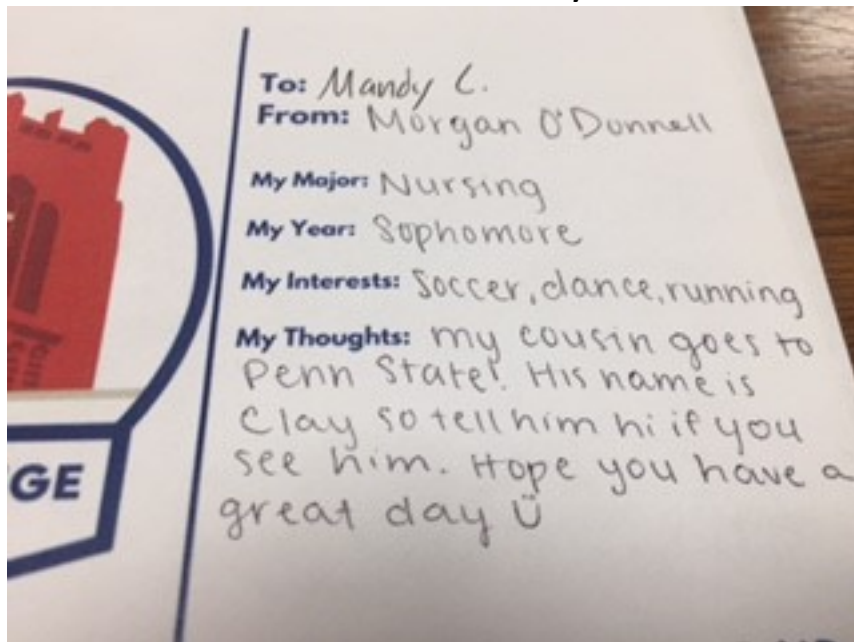 To: Mandy C.
From: Morgan O'Donnell
My Major: Nursing
My Year: Sophomore
My Interests: Soccer, dance, running
My Thoughts: my cousin goes to
Penn State! His name is
Clay so tell him hi if you
see him. Hope you have a
great day Ü
GE